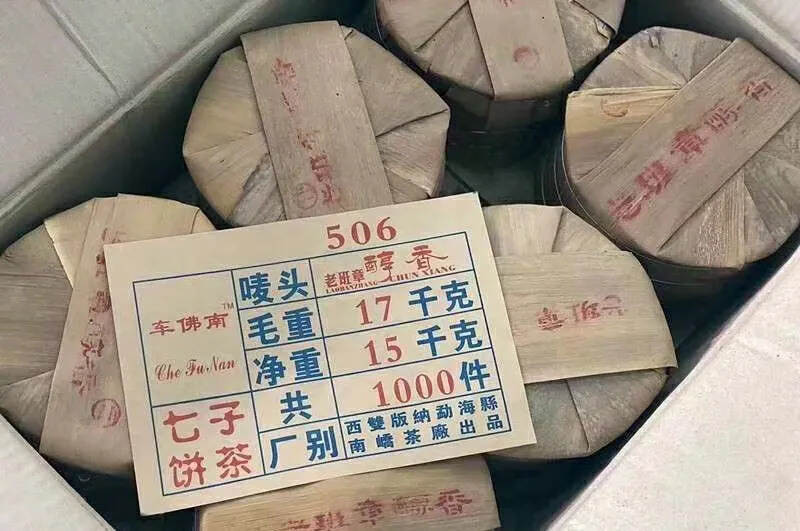 506
唛头
老班章醇香
LAOBANZHANG CHUN XIANG
车佛南™
Che Fu Nan
毛重
17千克
净重
15千克
共
1000件
七子
饼茶
厂别
西雙版納勐海縣
南嶠茶廠出品
老班章醇香
老班章醇香